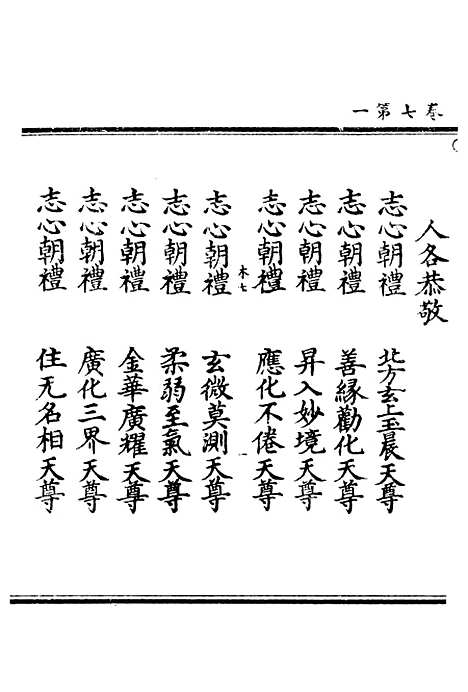 卷七第一
人各恭敬
志心朝禮 北方玄上玉晨天尊
志心朝禮 善緣勸化天尊
志心朝禮 昇入妙境天尊
志心朝禮 應化不倦天尊
木七 一
志心朝禮 玄微莫測天尊
志心朝禮 柔弱至氣天尊
志心朝禮 金華廣耀天尊
志心朝禮 廣化三界天尊
志心朝禮 住无名相天尊